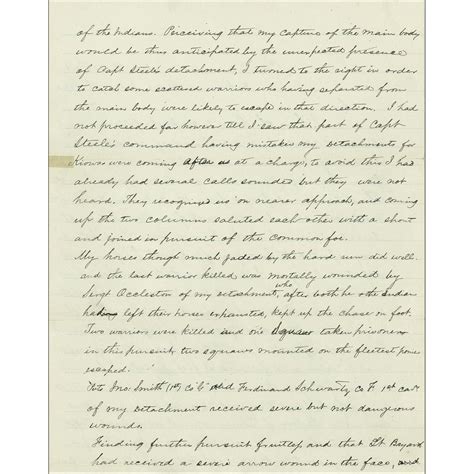 of the Indians. Perceiving that my capture of the main body
would be thus anticipated by the unexpected presence
of Capt Steele's detachment, I turned to the right in order
to catch some scattered warriors who having separated from
the main body were likely to escape in that direction. I had
not proceeded far however till I saw that part of Capt
Steele's command having mistaken my detachments for
Kiowas were coming after us at a charge, to avoid this I had
already had several calls sounded but they were not
heard. They recognised us on nearer approach, and coming
up the two columns saluted each other with a shout
and joined in pursuit of the common foe.
My horses though much jaded by the hard run did well.
and the last warrior killed was mortally wounded by
Sergt Occleston of my detachment, who after both he & the Indian
had left their horses exhausted, kept up the chase on foot.
Two warriors were killed and one Squaw taken prisoners
in this pursuit, two squaws mounted on the fleetest ponies
escaped.
Jno. Smith Co "G" and Ferdinand Schwartz Co F. 1st Cav.
of my detachment received severe but not dangerous
wounds.
Finding further pursuit fruitless and that Lt. Bayard
had received a severe arrow wound in the face, and